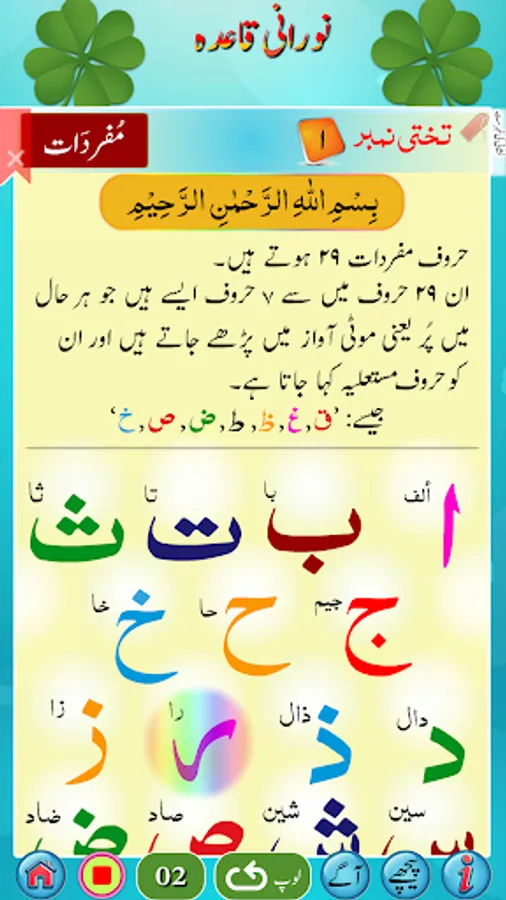 نورانی قاعدہ
تختی نمبر ۱ مُفردَات
بِسْمِ اللهِ الرَّحْمٰنِ الرَّحِيْمِ
حروف مفردات ۲۹ ہوتے ہیں۔
ان ۲۹ حروف میں سے ۷ حروف ایسے ہیں جو ہر حال
میں پُر یعنی موٹی آواز میں پڑھے جاتے ہیں اور ان
کو حروف مستعلیہ کہا جاتا ہے۔
جیسے: ’ق, غ, ظ, ط, ض, ص, خ‘
ا ألف ب با ت تا ث ثا
ج جیم ح حا خ خا
د دال ذ ذال ر را ز زا
س سین ش شین ص صاد ض ضاد
02 لوپ آگے پیچھے i